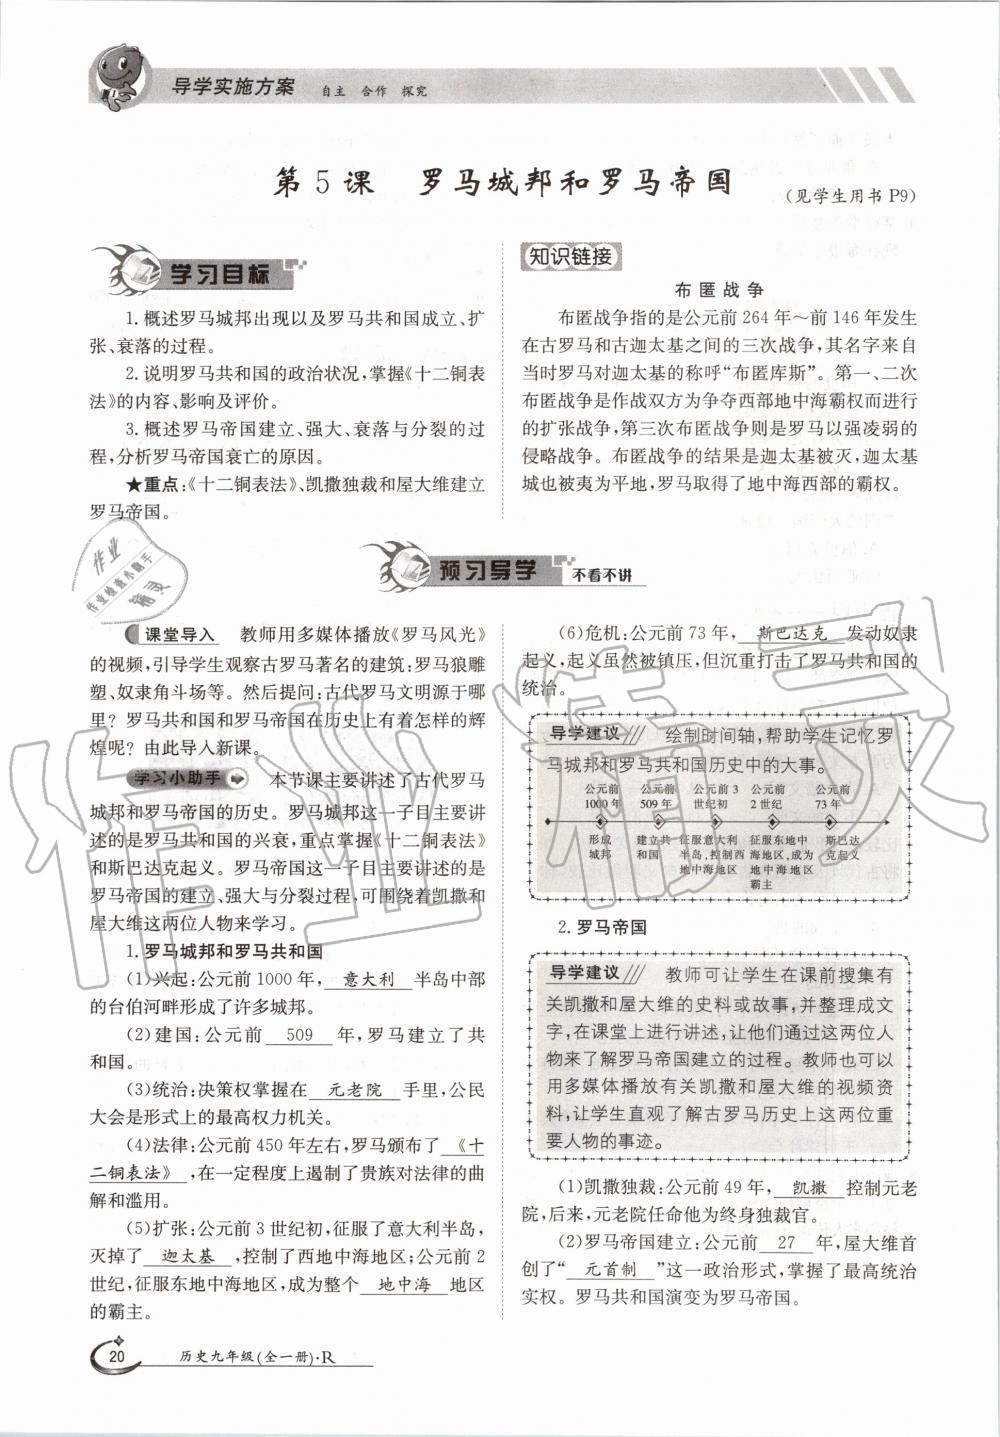 导学实施方案 自主 合作 探究
第5课 罗马城邦和罗马帝国
(见学生用书P9)
学习目标
1.概述罗马城邦出现以及罗马共和国成立、扩
张、衰落的过程。
2.说明罗马共和国的政治状况,掌握《十二铜表
法》的内容、影响及评价。
3.概述罗马帝国建立、强大、衰落与分裂的过
程,分析罗马帝国衰亡的原因。
★重点:《十二铜表法》、凯撒独裁和屋大维建立
罗马帝国。
知识链接
布匿战争
布匿战争指的是公元前264年～前146年发生
在古罗马和古迦太基之间的三次战争,其名字来自
当时罗马对迦太基的称呼“布匿库斯”。第一、二次
布匿战争是作战双方为争夺西部地中海霸权而进行
的扩张战争,第三次布匿战争则是罗马以强凌弱的
侵略战争。布匿战争的结果是迦太基被灭,迦太基
城也被夷为平地,罗马取得了地中海西部的霸权。
预习导学 不看不讲
课堂导入 教师用多媒体播放《罗马风光》
的视频,引导学生观察古罗马著名的建筑:罗马狼雕
塑、奴隶角斗场等。然后提问:古代罗马文明源于哪
里?罗马共和国和罗马帝国在历史上有着怎样的辉
煌呢?由此导入新课。
学习小助手 本节课主要讲述了古代罗马
城邦和罗马帝国的历史。罗马城邦这一子目主要讲
述的是罗马共和国的兴衰,重点掌握《十二铜表法》
和斯巴达克起义。罗马帝国这一子目主要讲述的是
罗马帝国的建立、强大与分裂过程,可围绕着凯撒和
屋大维这两位人物来学习。
1.罗马城邦和罗马共和国
(1)兴起:公元前1000年, 意大利 半岛中部
的台伯河畔形成了许多城邦。
(2)建国:公元前 509 年,罗马建立了共
和国。
(3)统治:决策权掌握在 元老院 手里,公民
大会是形式上的最高权力机关。
(4)法律:公元前450年左右,罗马颁布了 《十
二铜表法》 ,在一定程度上遏制了贵族对法律的曲
解和滥用。
(5)扩张:公元前3世纪初,征服了意大利半岛,
灭掉了 迦太基 ,控制了西地中海地区;公元前2
世纪,征服东地中海地区,成为整个 地中海 地区
的霸主。
(6)危机:公元前73年, 斯巴达克 发动奴隶
起义,起义虽然被镇压,但沉重打击了罗马共和国的
统治。
导学建议 绘制时间轴,帮助学生记忆罗
马城邦和罗马共和国历史中的大事。
公元前 公元前 公元前3 公元前 公元前
1000年 509年 世纪初 2世纪 73年
形成 建立共 征服意大利 征服东地中 斯巴达
城邦 和国 半岛,控制西 海地区,成为 克起义
地中海地区 地中海地区
霸主
2.罗马帝国
导学建议 教师可让学生在课前搜集有
关凯撒和屋大维的史料或故事,并整理成文
字,在课堂上进行讲述,让他们通过这两位人
物来了解罗马帝国建立的过程。教师也可以
用多媒体播放有关凯撒和屋大维的视频资
料,让学生直观了解古罗马历史上这两位重
要人物的事迹。
(1)凯撒独裁:公元前49年, 凯撒 控制元老
院,后来,元老院任命他为终身独裁官。
(2)罗马帝国建立:公元前 27 年,屋大维首
创了“ 元首制 ”这一政治形式,掌握了最高统治
实权。罗马共和国演变为罗马帝国。
20 历史九年级(全一册)·R
作业
作业检查小助手
精灵
作业精灵